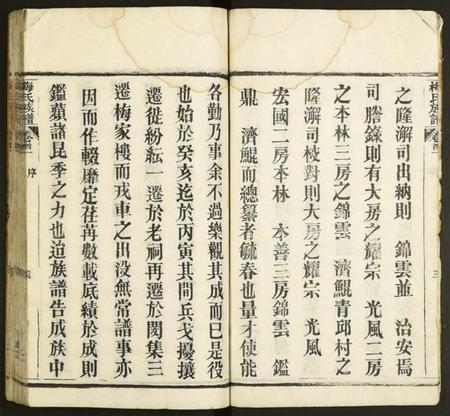 之隆瀚司出納則　錦雲並　治安焉
司謄錄則有大房之耀宗　光風二房
之本林三房之錦雲　濟鯤青邱村之
隆瀚司校對則大房之耀宗　光風
宏國二房本林　本善三房錦雲　鑑
鼎　濟鯤而總纂者毓春也量才使能
各勤乃事余不過樂觀其成而巳是役
也始於癸亥迄於丙寅其間兵戈擾攘
遷徙紛紜一遷於老祠再遷於閔集三
遷梅家樓而戎車之出没無常譜事亦
因而作輟靡定荏苒數載底績於成則
鑑蘋諸昆季之力也迨族譜告成族中
梅氏族譜
卷首
序
三